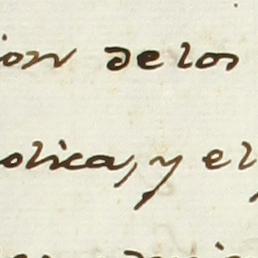 ion de los
olica, y el